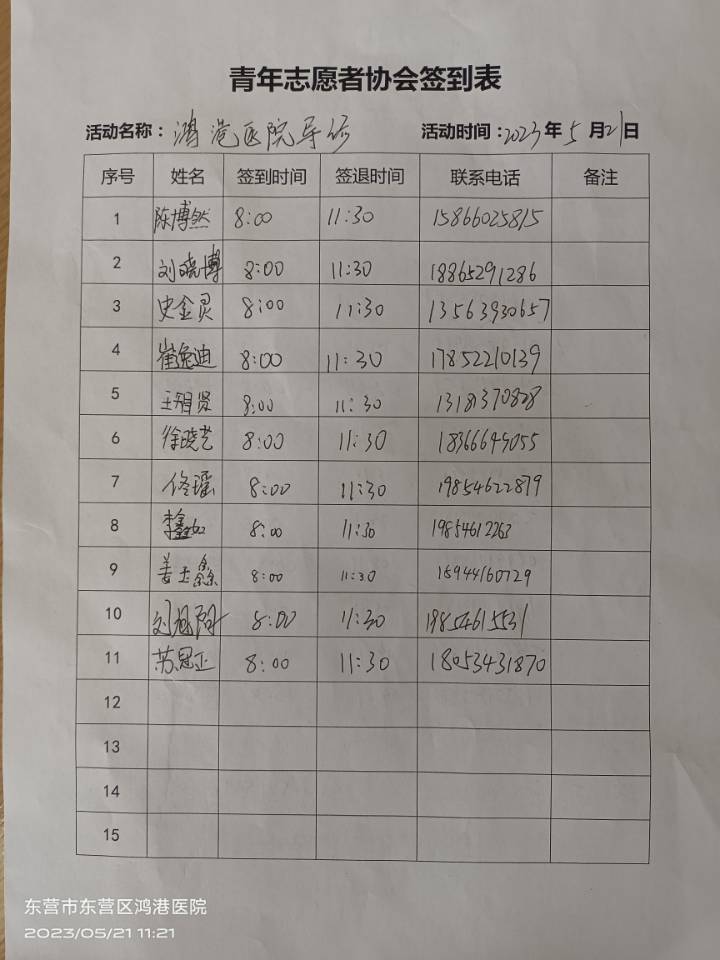 青年志愿者协会签到表
活动名称：鸿港医院导诊 活动时间：2023年5月21日
序号 姓名 签到时间 签退时间 联系电话 备注
1 陈博然 8:00 11:30 15866025815
2 刘晓博 8:00 11:30 18865291286
3 史金灵 8:00 11:30 13563930657
4 崔兔迪 8:00 11:30 17852210139
5 王智贤 8:00 11:30 13181370828
6 徐晓艺 8:00 11:30 18366649055
7 佟瑶 8:00 11:30 19854622879
8 李鑫如 8:00 11:30 19854612263
9 姜玉鑫 8:00 11:30 15944160729
10 刘旭阳 8:00 11:30 19854615531
11 苏冠正 8:00 11:30 18053431870
12
13
14
15
东营市东营区鸿港医院
2023/05/21 11:21